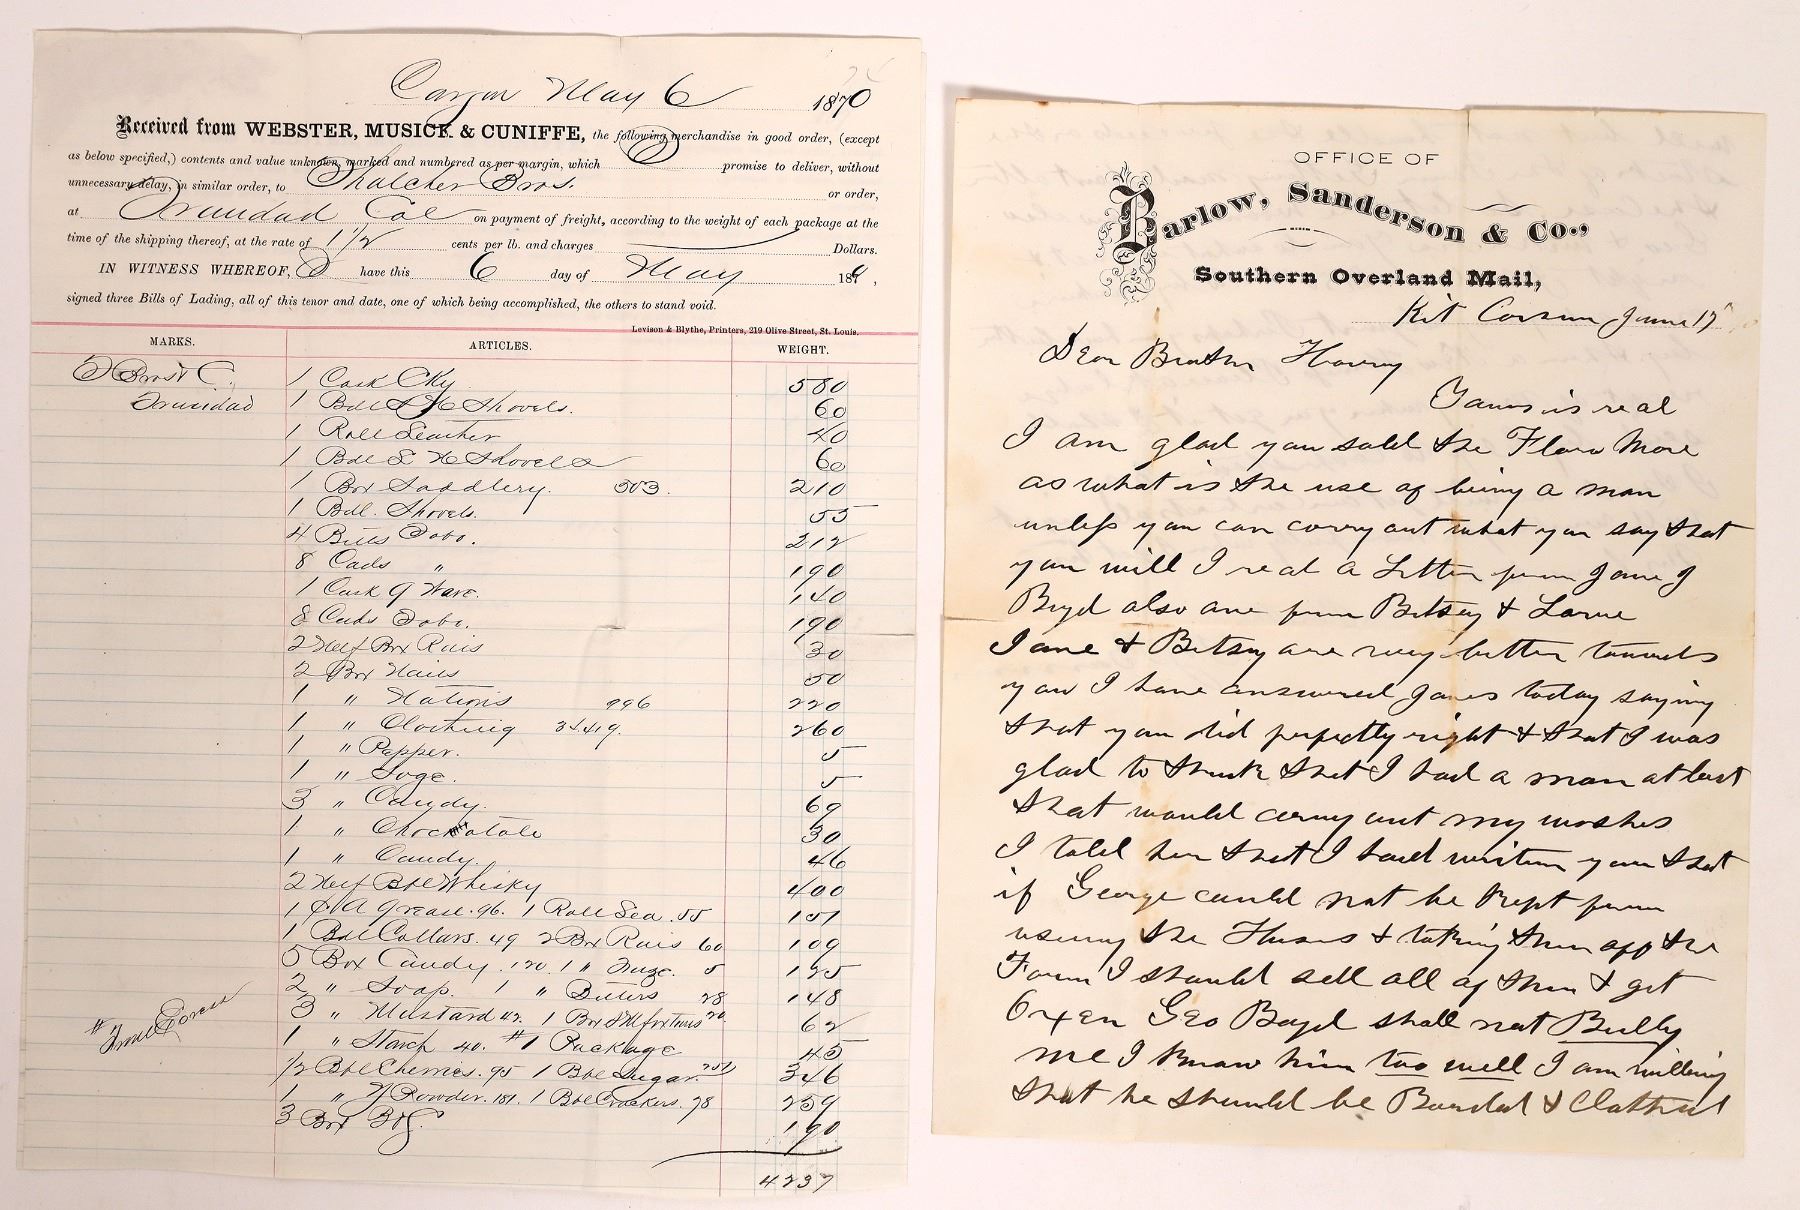 Carson May 6 1870
Received from WEBSTER, MUSICK & CUNIFFE, the following merchandise in good order, (except
as below specified,) contents and value unknown, marked and numbered as per margin, which I promise to deliver, without
unnecessary delay, in similar order, to Thatcher Bros. or order,
at Trinidad Col on payment of freight, according to the weight of each package at the
time of the shipping thereof, at the rate of 1 1/2 cents per lb. and charges Dollars.
IN WITNESS WHEREOF, I have this 6 day of May 187
signed three Bills of Lading, all of this tenor and date, one of which being accomplished, the others to stand void.
Levison & Blythe, Printers, 219 Olive Street, St. Louis.
MARKS. ARTICLES. WEIGHT.
1 Cask 580
Trinidad 1 Bdl L H Shovels. 60
1 Roll Leather 40
1 Bdl L H Shovels 60
1 Box Saddlery. 503. 210
1 Bdl. Shovels. 55
4 Butts Tobo. 212
8 Cads " 190
1 Cask Q Ware. 140
8 Cads Tobo. 190
2 Half Box Rais 30
2 Box Nails 50
1 " Notions 996 220
1 " Clothing 260
1 " Pepper. 5
1 " Sage. 5
3 " Candy. 69
1 " Chockatate 30
1 " Candy. 46
2 Half Bbl Whisky 400
1 Grease. 96. 1 Roll Lea. 55 151
1 Bdl Collars. 49 2 Box Rais 60 109
5 Box Candy. 120. 1 " 5 125
2 " Soap. 1 " Bitters 28 148
3 " Mustard 42. 1 Box 20 62
1 " Starch 40. #1 Package 45
1/2 Bbl 95 1 Bbl Sugar. 251 346
1 " Powder. 181. 1 Bbl Crackers. 78 259
3 Box 190
4237
OFFICE OF
Barlow, Sanderson & Co.,
Southern Overland Mail,
Kit Carson June 17
Dear Brother Harvey
Yours is recd
I am glad you sold the Flora More
as what is the use of being a man
unless you can carry out what you say that
you will I recd a Letter from Jane J
Boyd also one from Betsey &
Jane & Betsey are very bitter towards
you I have answered Janes today saying
that you did perfectly right & that I was
glad to think that I had a man at last
that would carry out my wishes
I told her that I had written you that
if George could not be kept from
useing the & taking them off the
Farm I should sell all of them & get
Oxen Geo Boyd shall not Bully
me I know him too well I am willing
that he should be Boarded & Clothed